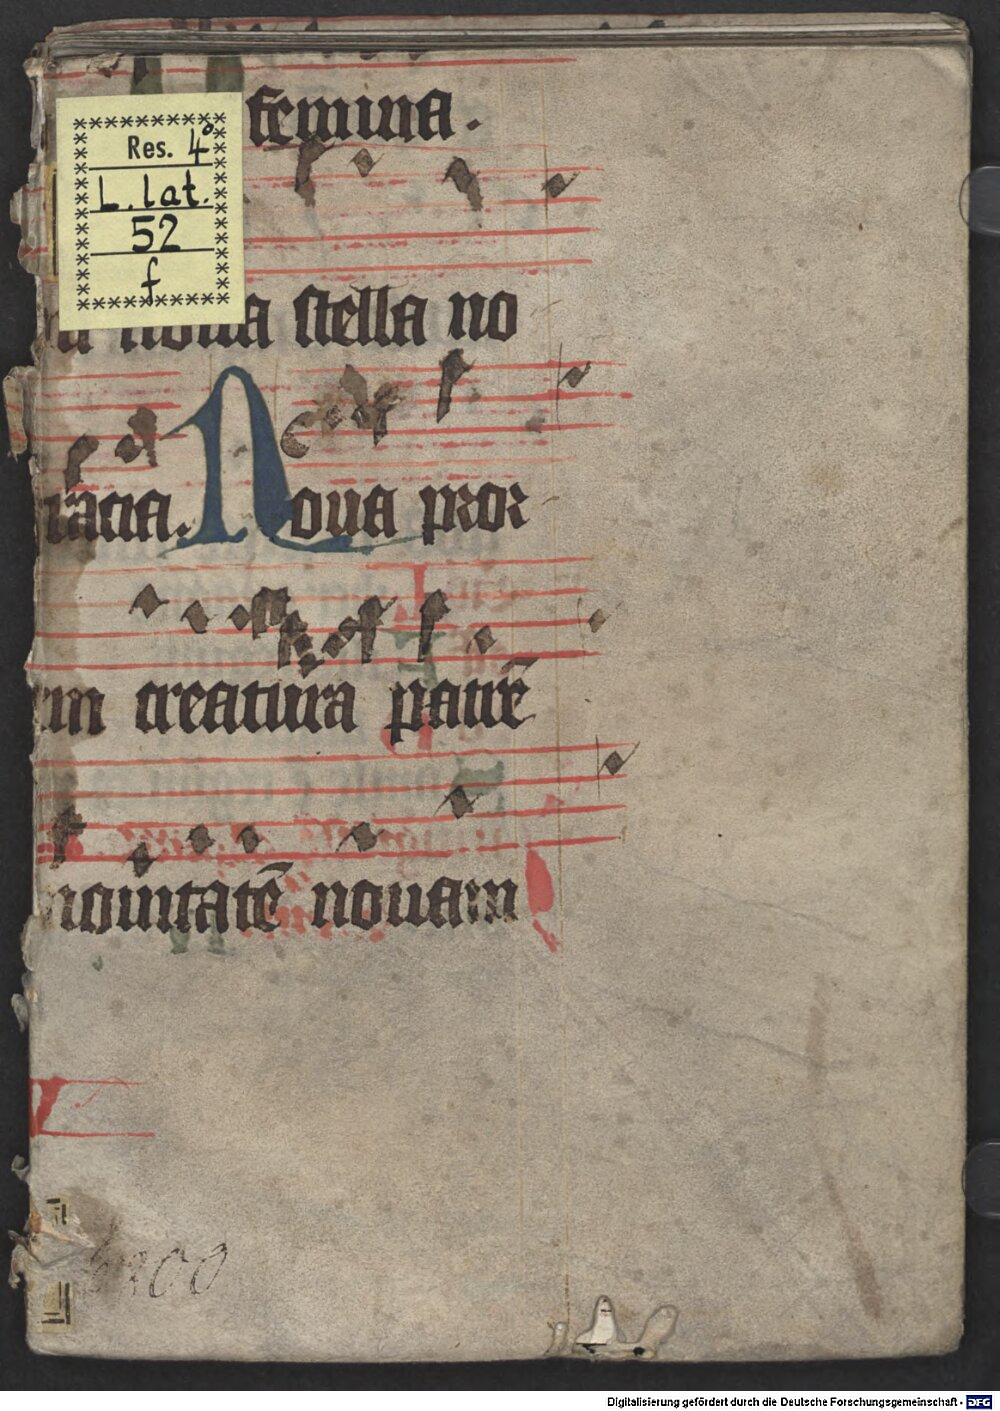 femina.
Res. 4°
L. lat.
52
f
noua stella no
racia. Noua pror
em creatura patrē
nouitatē nouam
Digitalisierung gefördert durch die Deutsche Forschungsgemeinschaft - DFG